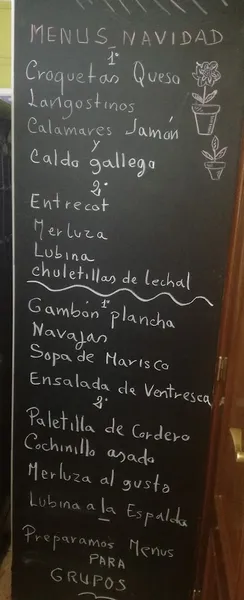 MENUS NAVIDAD
1º
Croquetas Queso
Langostinos
Calamares Jamón
y
Caldo gallego
2º
Entrecot
Merluza
Lubina
chuletillas de lechal
1º
Gambón plancha
Navajas
Sopa de Marisco
Ensalada de Ventresca
2º
Paletilla de Cordero
Cochinillo asado
Merluza al gusto
Lubina a la Espalda
Preparamos Menus
PARA
GRUPOS